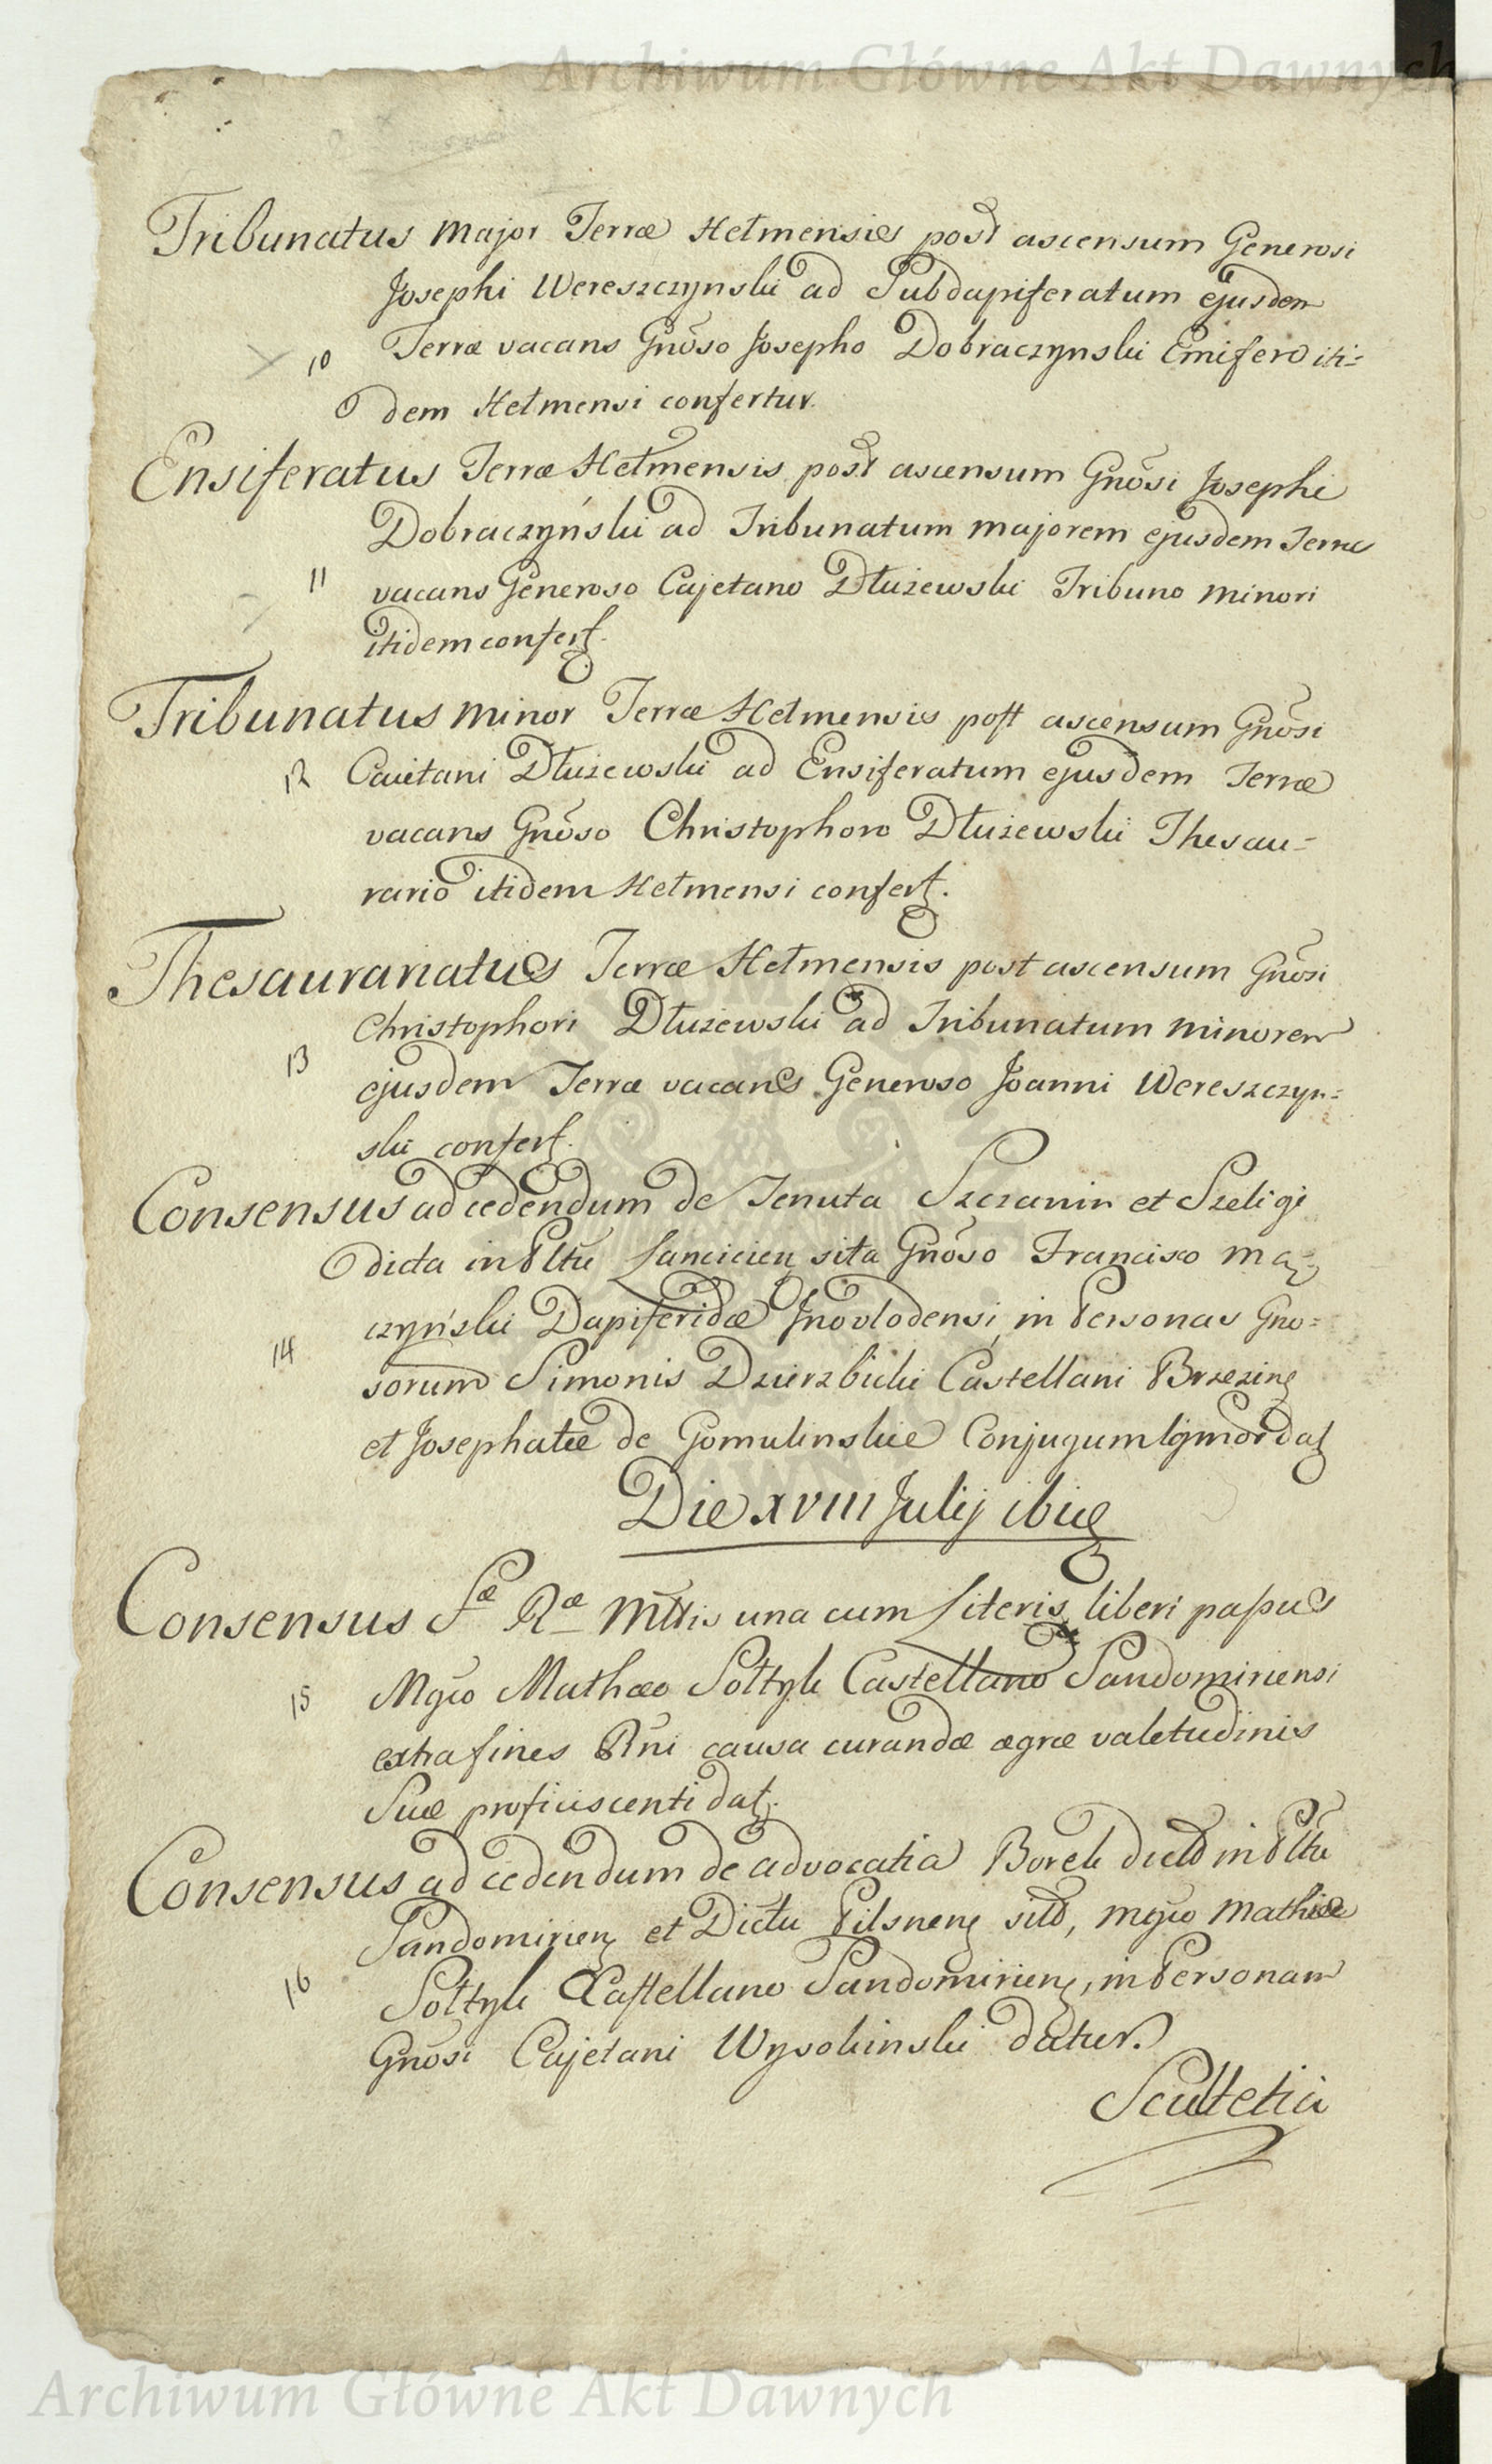 Archiwum Główne Akt Dawnych
Tribunatus major Terræ Hełmensis post ascensum Generosi
Josephi Wereszczynski ad Subdapiferatum ejusdem
10 Terræ vacans Gnõso Josepho Dobraczynski Ensifero iti=
dem Hełmensi confertur.
Ensiferatus Terræ Hełmensis post ascensum Gnõsi Josephi
Dobraczyński ad Tribunatum majorem ejusdem Terræ
11 vacans Generoso Cajetano Dłużewski Tribuno minori
itidem confert.
Tribunatus minor Terræ Hełmensis post ascensum Gnõsi
12 Caietani Dłużewski ad Ensiferatum ejusdem Terræ
vacans Gnõso Christophoro Dłużewski Thesau=
rario itidem Hełmensi confert.
Thesaurariatus Terræ Hełmensis post ascensum Gnõsi
Christophori Dłużewski ad Tribunatum minorem
13 ejusdem Terræ vacans Generoso Joanni Wereszczyn=
ski confert.
Consensus ad cedendum de Tenuta Szczanin et Szeligi
dicta in Pltũ Lancicien sita Gnõso Francisco Mą=
czyński Dapiferidæ Jnovlodensi, in Personas Gno=
14 sorum Simonis Dzierzbicki Castellani Brzezinen
et Josephatæ de Gomulinskie Conjugum lgmor dat
Die XVIII Julij ibid
Consensus Sæ Ræ Mttis una cum Literis liberi passus
15 Mgco Mathæo Sołtyk Castellano Sandomiriensi
extra fines Rni causa curandæ ægræ valetudinis
Suæ proficiscenti dat.
Consensus ad cedendum de advocatia Borek dicta in Pltũ
Sandomirien et Dictu Pilsnen sita, Mgco Mathiæ
16 Sołtyk Castellano Sandomirien, in Personam
Gnõsi Cajetani Wysokinski datur.
Scultetia
Archiwum Główne Akt Dawnych